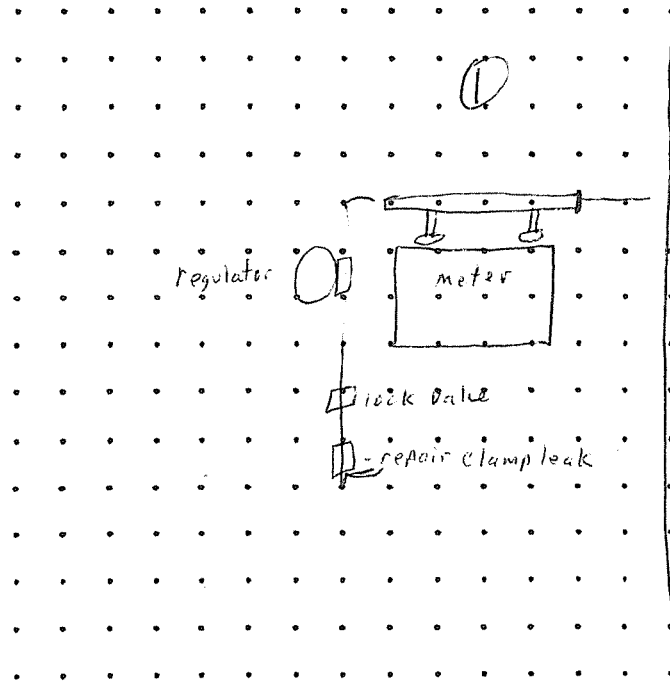 1
regulator
meter
lock valve
- repair clamp leak